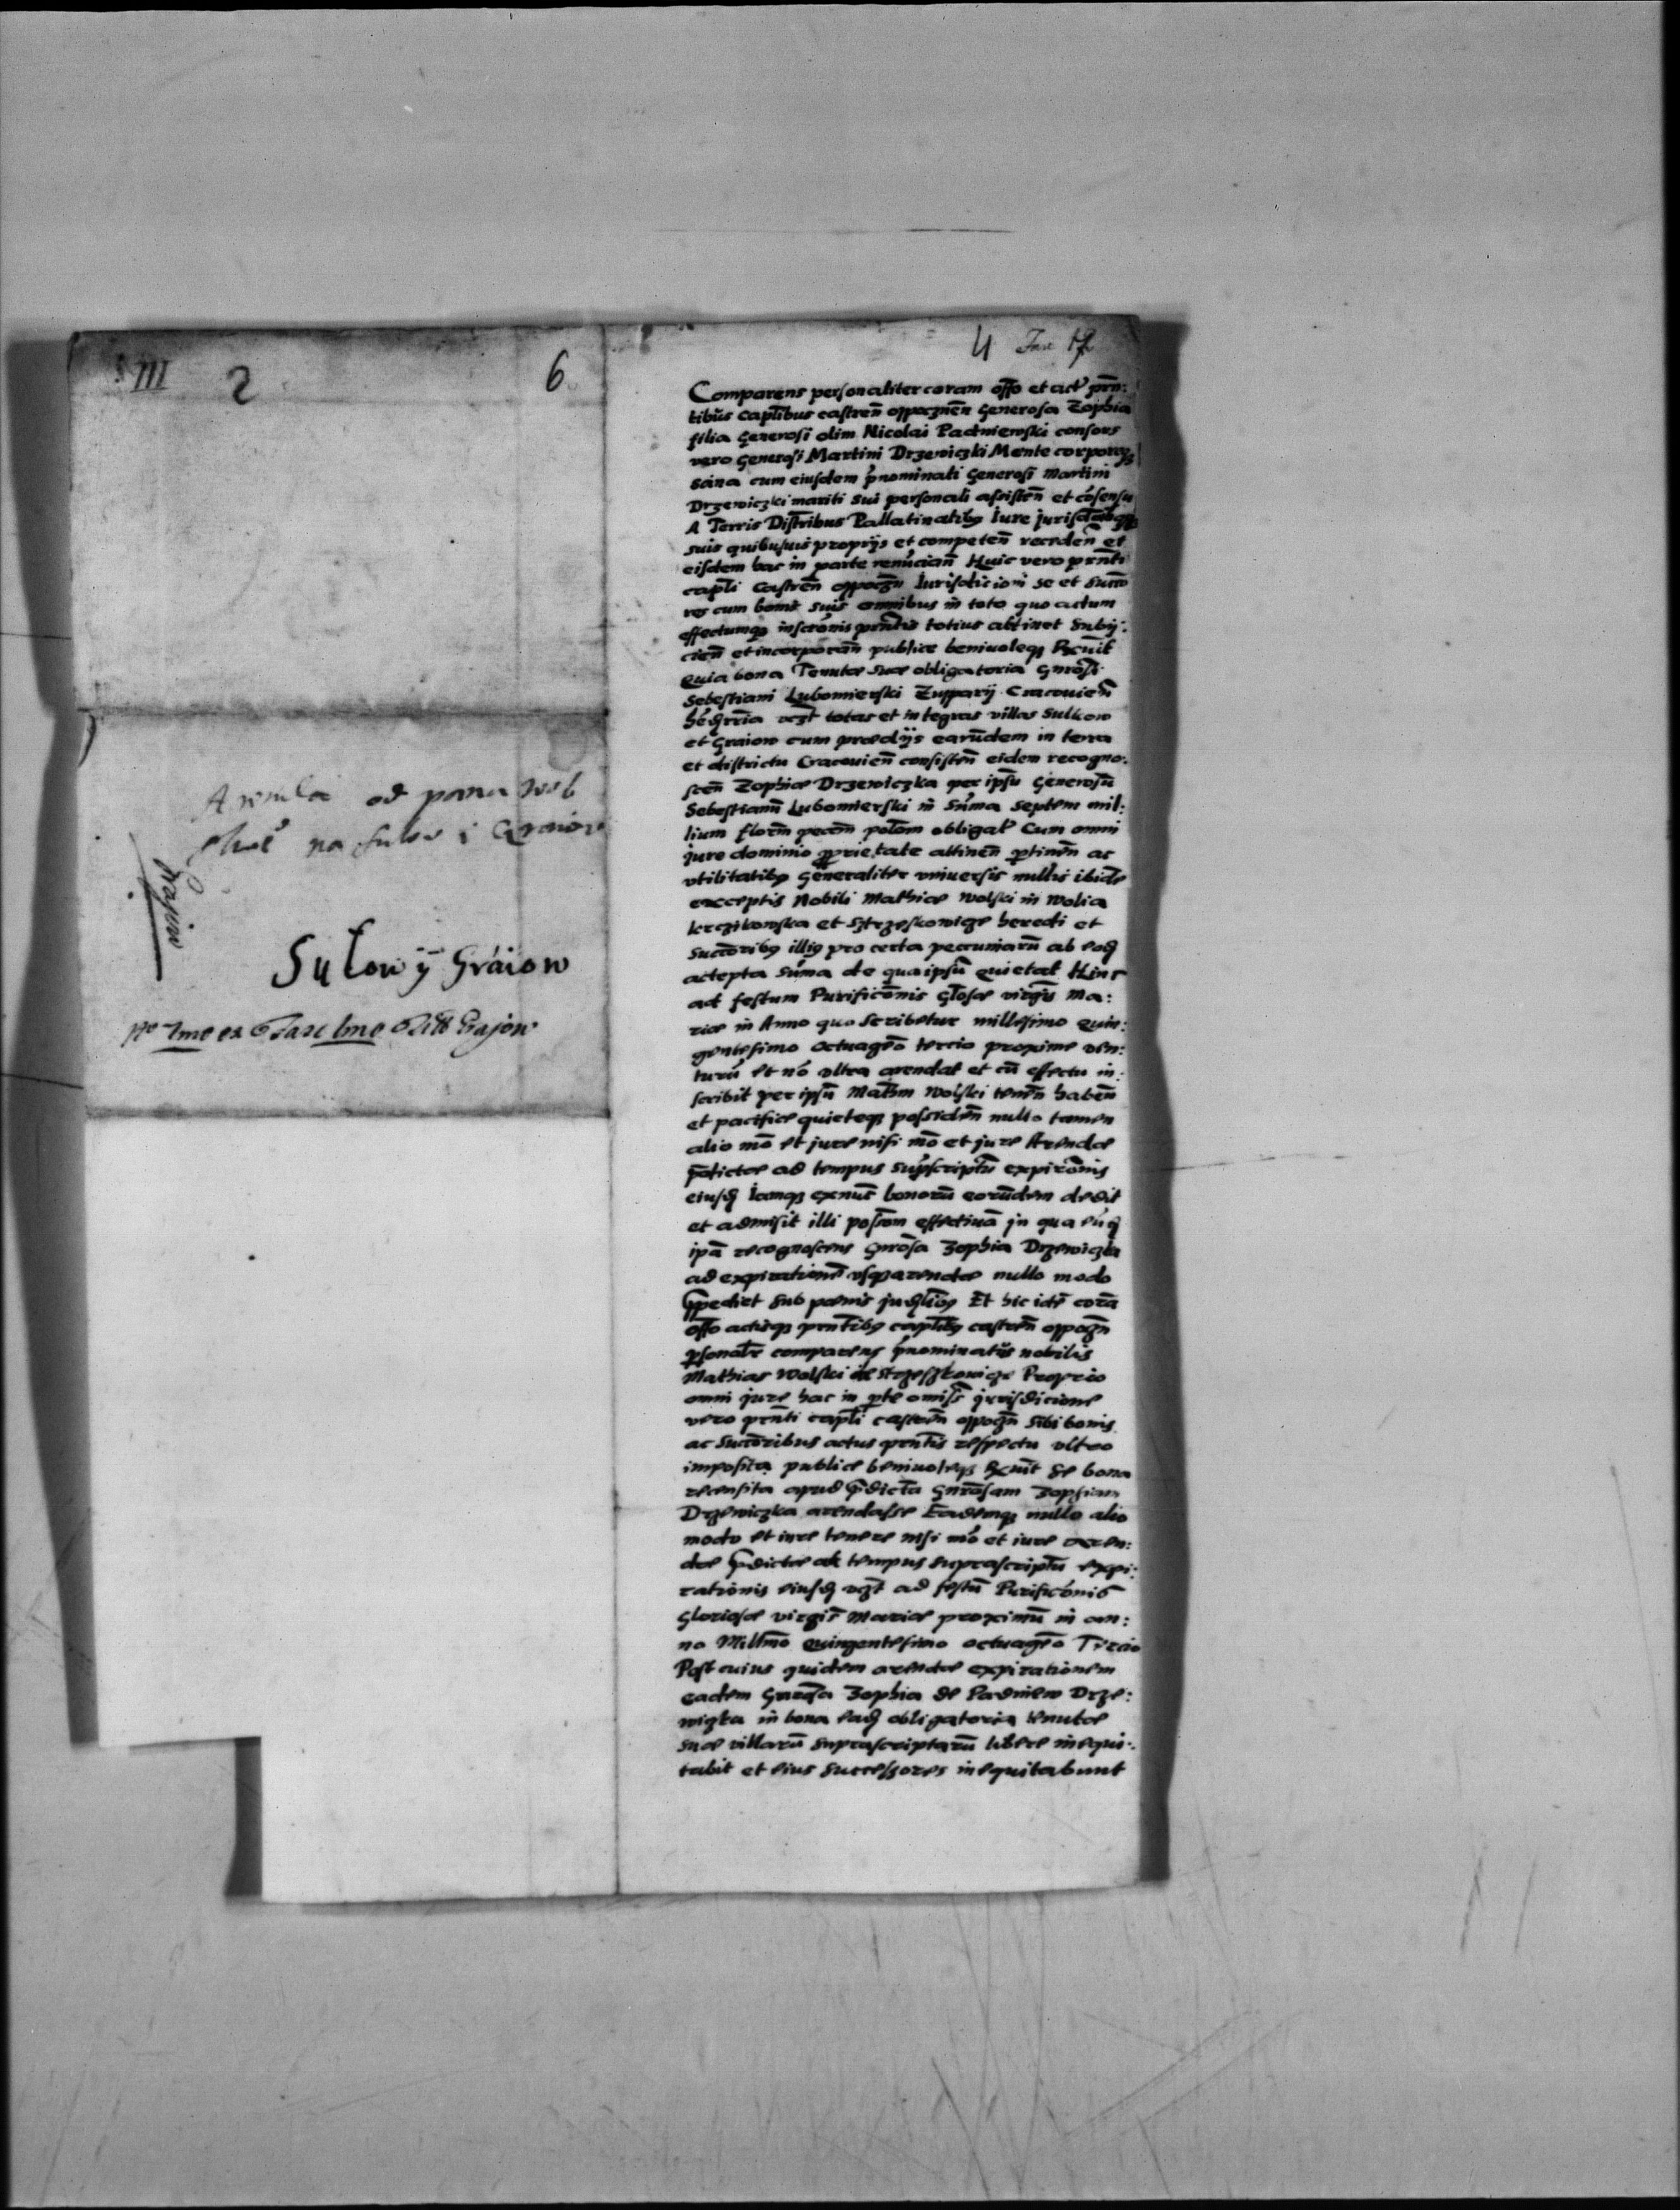 III 2 6
Arenda od pana
na Sulow i Graiow
Grajow
Sułow ÿ Gráiow
Grajow
4
Comparens personaliter coram offo et act prn:
tibus Captlibus castren oppocznen Generosa Zophia
filia Generosi olim Nicolai Padniewski consors
vero Generosi Martini Drzewiczki Mente corporeqz
sana cum eiusdem pnominati Generosi Martini
Drzewiczki mariti sui personali assisten et cosensu
A Terris Distribus Pallatinatibq Iure jurisdibqz
suis quibusuis proprijs et competen receden et
eisdem hac in parte renuncian Huic vero prnti
captli Castren oppoczn Iurisdicioni se et succo
res cum bonis suis omnibus in toto quo actum
effectumqz inscronis prntis totius attinet Subij:
cien et incorporan publice beniuoleqz Rcuit
Quia bona Tenutae suae obligatoria Gnrosi
Sebestiani Lubomierski Zupparij Cracouien
hedrria vzt totas et integras villas Sulkow
et Graiow cum praedijs earudem in terra
et districtu Cracouien consisten eidem recogno:
scen Zophiae Drzewiczka per ipsu Generosu
Sebestianu Lubomierski in suma septem mil:
lium floren pecun polom obligat Cum omni
jure dominio pprietate attinen ptinen ac
vtilitatibq Generaliter vniuersis nullis ibide
exceptis Nobili Mathiae Wolski in Wolia
krczikowska et Strzeskowicze heredi et
Succoribq illiq pro certa pecuniaru ab eod
accepta suma de qua ipsu quietat Hinc
ad festum Purificonis Glosae virgis Ma:
riae in Anno quo scribetur millesimo quin:
gentesimo octuageo tercio proxime ven:
turu et no vltra arendat et cu effectu in:
scribit per ipsu Mathm Wolski tenen haben
et pacifice quieteqz possiden nullo tamen
alio mo et jure nisi mo et jure Arendae
pdictae ad tempus supscriptu expironis
eiusd Iamqz exnut bonoru eorudem dedit
et admisit illi possom effectiua in qua eud
ipa recognoscens Gnrosa Zophia Drzewiczka
ad expiratione vsqz arendae nullo modo
ppediet sub paenis judlibq Et hic ide cora
offo actisqz prntibq captlibq castren oppoczn
psonalr comparens pnominatus nobilis
Mathias Wolski de Strzeszkowicze Proprio
omni jure hac in pte omiss jurisdicione
vero prnti captli castren oppoczn sibi bonis
ac succoribus actus prntis respectu vltro
imposita publice beniuoleqz Rcuit se bona
recensita apud pdicta Gnrosam Zophiam
Drzewiczka arendasse Eademqz nullo alio
modo et iure tenere nisi mo et iure aren:
dae pdictae ad tempus suprascriptu expi:
rationis eiusd vzt ad festu Purificonis
Gloriosae virgis Mariae proximu in an:
no Millmo quingentesimo octuageo Tercio
Post cuius quidem arendae expirationem
eadem Gnrosa Zophia de Padniew Drze:
wiczka in bona ead obligatoria tenutae
suae villaru suprascriptaru libere inequi:
tabit et eius successores inequitabunt